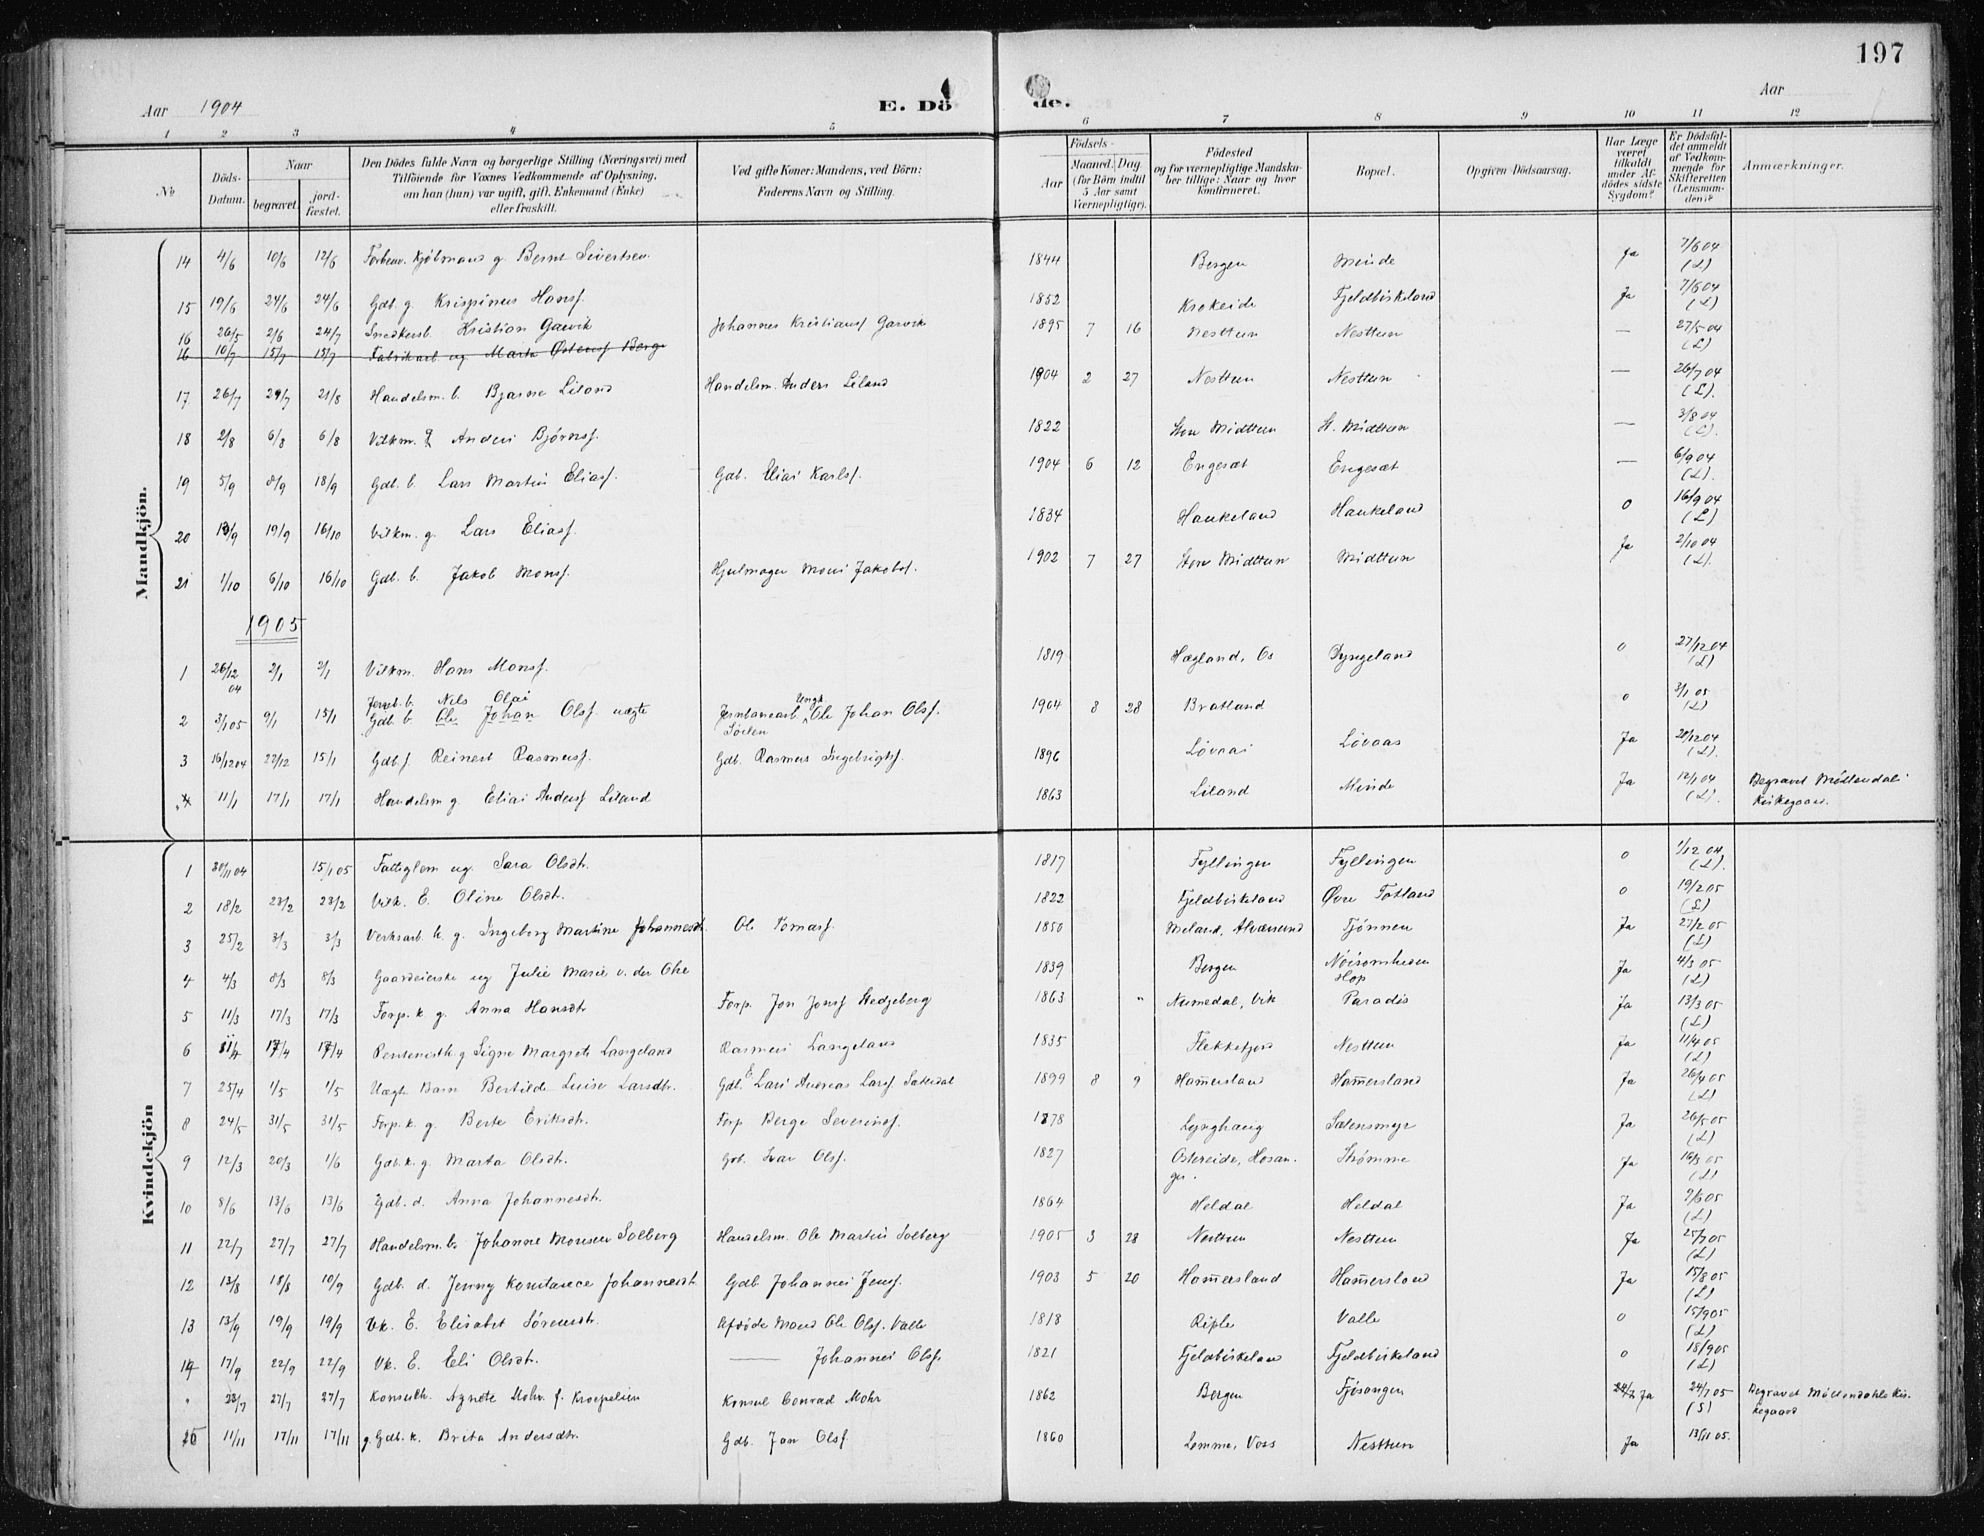 197
Aar 1904
E. Dö
de.
Aar
1 2 3 4 5 6 7 8 9 10 11 12
No
Döds-Datum.
Naar
begravet.
jord-fæstet.
Den Dödes fulde Navn og borgerlige Stilling (Næringsvei) med Tilföiende for Voxnes Vedkommende af Oplysning, om han (hun) var ugift, gift, Enkemand (Enke) eller fraskilt.
Ved gifte Koner: Mandens, ved Börn: Faderens Navn og Stilling.
Födsels-
Aar
Maaned. Dag
(for Börn indtil 5 Aar samt Værnepligtige).
Födested og for værnepligtige Mandskaber tillige: Naar og hvor konfirmeret.
Bopæl.
Opgiven Dödsaarsag.
Har Læge været tilkaldt under Afdödes sidste Sygdom?
Er Dödsfaldet anmeldt af Vedkommende for Skifteretten (Lensmanden)?
Anmærkninger.
Mandkjön.
14 4/6 10/6 12/6 Forhenv. Kjøbmand g. Bernt Sivertsen 1844 Bergen Minde Ja 7/6 04 (L)
15 19/6 24/6 24/6 Gdb. g. Krispinus Hansf. 1852 Krokeide Fjeldbirkeland Ja 7/6 04 (L)
16 26/5 2/6 24/7 Snedkersb. Kristian Garvik Johannes Kristiansf Garvik 1895 7 16 Nesttun Nesttun — 27/5 04 (L)
16 10/7 15/7 15/7 Fabrikarb ug Marta Østensf Berge
17 26/7 29/7 21/8 Handelsm. b. Bjarne Liland Handelsm. Anders Liland 1904 2 27 Nesttun Nesttun — 26/7 04 (L).
18 2/8 6/8 6/8 Vilkm. g Anders Bjørnsf. 1822 Store Midttun St. Midttun — 3/8 04 (L).
19 5/9 8/9 18/9 Gdb. b. Lars Martin Eliasf. Gdb. Elias Karlsf. 1904 6 12 Engesæt Engesæt — 6/9 04 (L).
20 13/9 19/9 16/10 Vilkm. g. Lars Eliasf. 1834 Haukeland Haukeland 0 16/9 04 (L)
21 1/10 6/10 16/10 Gdb. b. Jakob Monsf. Hjulmager Mons Jakobsf. 1902 7 27 Store Midttun Midttun Ja 2/10 04 (L).
1905
1 26/12 04 2/1 2/1 Vilkm. Hans Monsf. 1819 Hægland, Os Dyngeland 0 27/12 04 (L)
Jernb. b. Nils Olai
2 3/1 05 9/1 15/1 Gdb b. Ole Johan Olsf. uægte Jernbanearb. Ungk. Ole Johan Olsf. Sørlen 1904 8 28 Bratland 0 3/1 05 (L)
3 16/12 04 22/12 15/1 Gdb f Reinert Rasmusf. Gdb. Rasmus Ingebrigtsf. 1896 Løvaas Løvaas Ja 20/12 04 (L).
4 11/1 17/1 17/1 Handelsm g. Elias Andersf Liland 1863 Liland Minde Ja 12/1 04 (L). Begravet Møllendals Kirkegaard.
Kvindekjön
1 30/11 04 15/1 05 Fattiglem ug. Sara Olsdt. 1817 Fyllingen Fyllingen 0 1/12 04 (L)
2 18/2 23/2 23/2 Vilk. E. Oline Olsdt. 1822 Fjeldbirkeland Øvre Totland 0 19/2 05 (L)
3 25/2 3/3 3/3 Verksarb. k. g. Ingeborg Martine Johannesdt. Ole Tomasf. 1850 Meland, Alværsund Tjønnen Ja 27/2 05 (L)
4 4/3 8/3 8/3 Gaardeierske ug Julie Marie v. der Ohe 1839 Bergen Noisomheden Hop Ja 4/3 05 (L)
5 11/3 17/3 17/3 Forp. k g. Anna Hansdt Forp. Jon Jonsf Hedgeberg 1863 " Numedal, Vik Paradis Ja 13/3 05 (L)
6 11/4 17/4 17/4 g Signe Margrete Langeland Rasmus Langeland 1835 Flekkefjord Nesttun Ja 11/4 05 (L)
7 25/4 1/5 1/5 Uægte Barn Bertilde Luise Larsdt. Gdb. E. Lars Andreas Larsf Sæterdal 1899 8 9 Hamersland Hamersland Ja 26/4 05 (L)
8 24/5 31/5 31/5 Forp. k. g. Berte Eriksdt. Forp Berge Severinsf. 1878 Lynghaug Sælensmyr Ja 26/5 05 (L)
9 12/3 20/3 1/6 Gdb. k. g. Marta Olsdt. Gdb. Ivar Olsf. 1827 Ostereide, Hosanger. Strømme Ja 16/3 05 (L)
10 8/6 13/6 13/6 Gdb. d. Anna Johannesdt. 1864 Heldal Heldal Ja 9/6 05 (L)
11 22/7 27/7 27/7 Handelsm. b. Johanne Monsen Solberg Handelsm. Ole Martin Solberg 1905 3 28 Nesttun Nesttun Ja 25/7 05 (L)
12 13/8 18/8 10/9 Gdb. d. Jenny Konstance Johannesdt. Gdb. Johannes Jensf. 1903 5 20 Hamersland Hamersland Ja 15/8 05 (L)
13 13/9 19/9 19/9 Vk. E. Elisabet Sørensdt. Afdøde Mand Ole Olsf. Valle 1818 Riple Valle 0 15/9 05 (L)
14 17/9 22/9 22/9 Vk. E. Eli Olsdt. — Johannes Olsf. 1821 Fjeldbirkeland Fjeldbirkeland 0 18/9 05 (L)
" 23/7 27/7 27/7 Konsulh. Agnete Mohr f. Kroepelien Konsul Conrad Mohr 1862 Bergen Fjøsangen 24/7 Ja 24/7 05 (S) Begravet Møllendahls Kirkegaard
15 11/11 17/11 17/11 g. Gdb. k. Brita Andersdt. Gdb. Jon Olsf. 1860 Lemme, Voss Nesttun Ja 13/11 05.